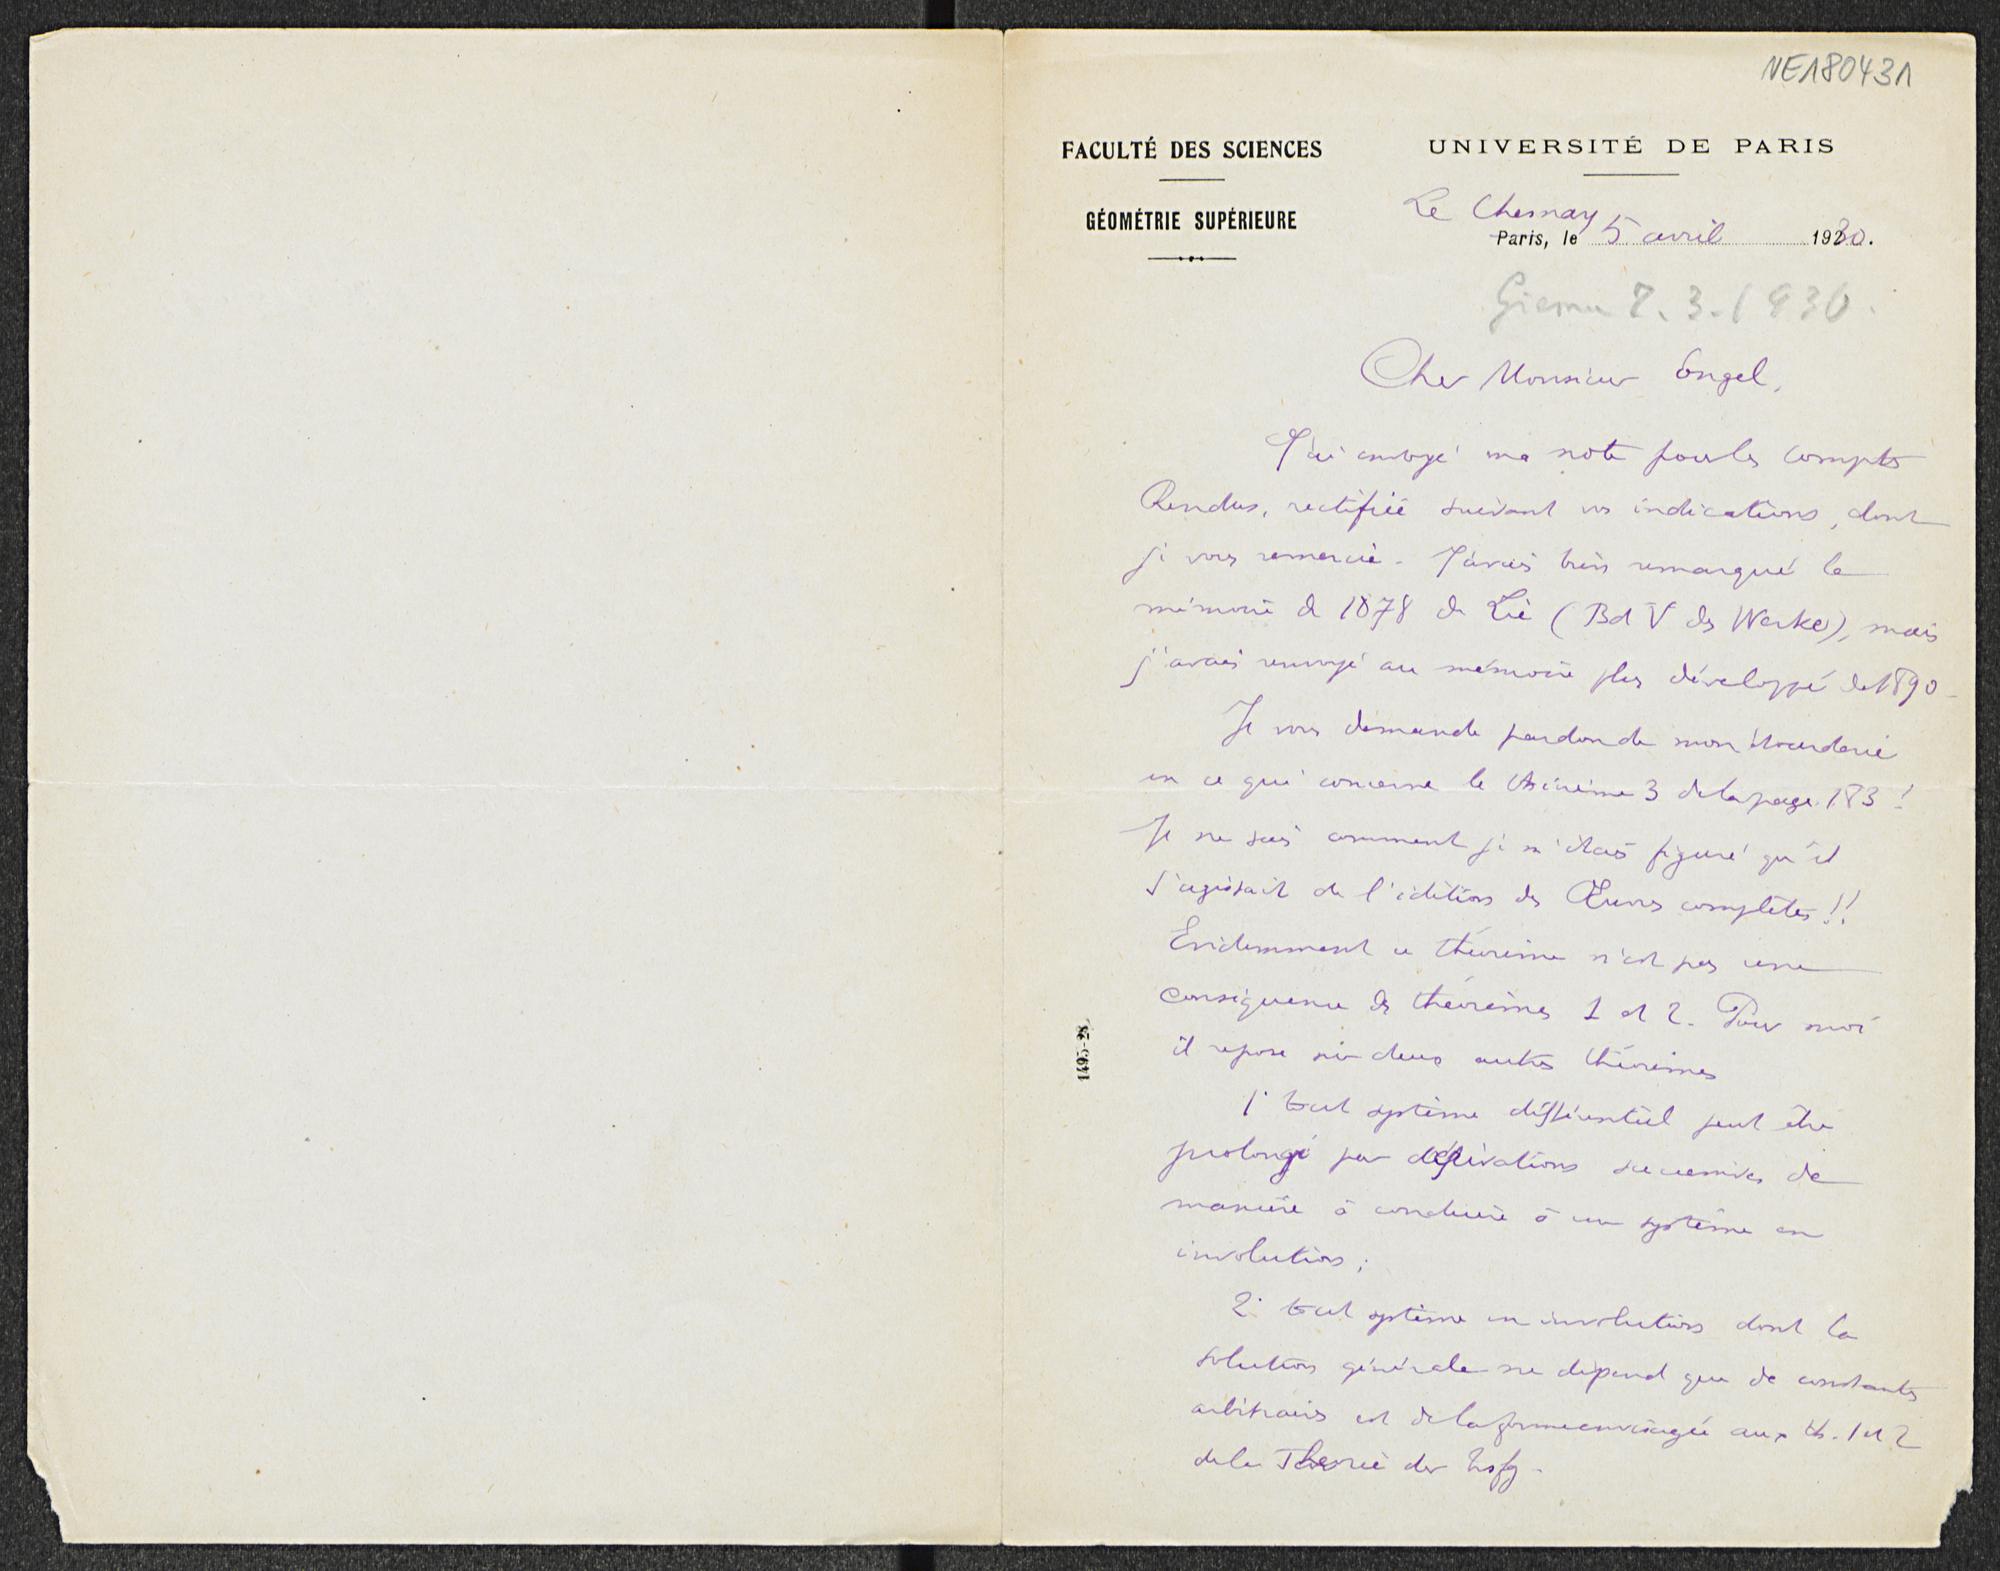 NE180431
FACULTÉ DES SCIENCES
GÉOMÉTRIE SUPÉRIEURE
UNIVERSITÉ DE PARIS
Le Chesnay
Paris, le 5 avril 1930.
3.1930.
Cher Monsieur Engel,
J'ai envoyé ma note pour les Comptes
Rendus, rectifiée suivant vos indications, dont
je vous remercie. J'avais bien remarqué le
mémoire de 1878 de Lie (Bd V des Werke), mais
j'avais renvoyé au mémoire plus développé de 1890.
Je vous demande pardon de mon étourderie
en ce qui concerne le théorème 3 de la page 183!
Je ne sais comment je m'étais figuré qu'il
s'agissait de l'édition des Œuvres complètes!!
Evidemment ce théorème n'est pas une
conséquence des théorèmes 1 et 2. Pour moi
il repose sur deux autres théorèmes
1° tout système différentiel peut être
prolongé par dérivations successives de
manière à conduire à un système en
involution;
2° tout système en involution dont la
solution générale ne dépend que de constantes
arbitraires est de la forme envisagée aux th. 1 et 2
de la Theorie der Trsfg.
1495-28.